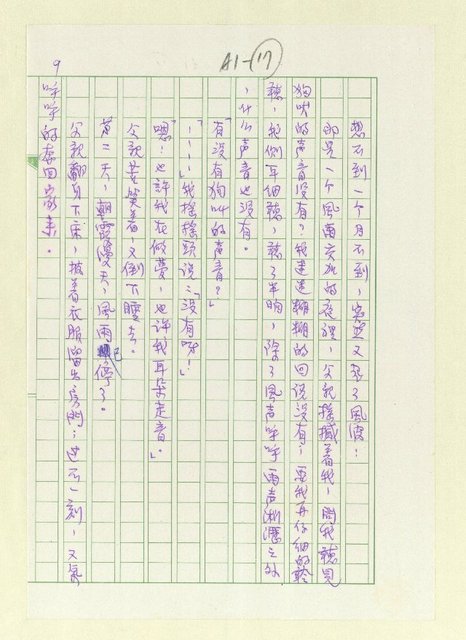 A1-(17)
9
想不到一个月不到，窝里又起了風波！
那是一个風雨交加的夜裡，父親搖撼着我，問我聽見
狗吠的声音沒有？我迷迷糊糊的回说沒有，要我再仔细的聽
聽，我侧耳细聽，聽了半晌，除了風声呼呼雨声淅瀝之外
，什么声音也沒有。
「有沒有狗叫的声音？」
「……」我搖搖頭说：「沒有呀！」
「嗯！也許我在做夢，也許我耳朵走音。」
父親苦笑着，又倒下睡去。
第二天，朝霞漫天，風雨已停了。
父親翻身下床，披着衣服溜出房門；过不一刻，又氣
呼呼的奔回家来。